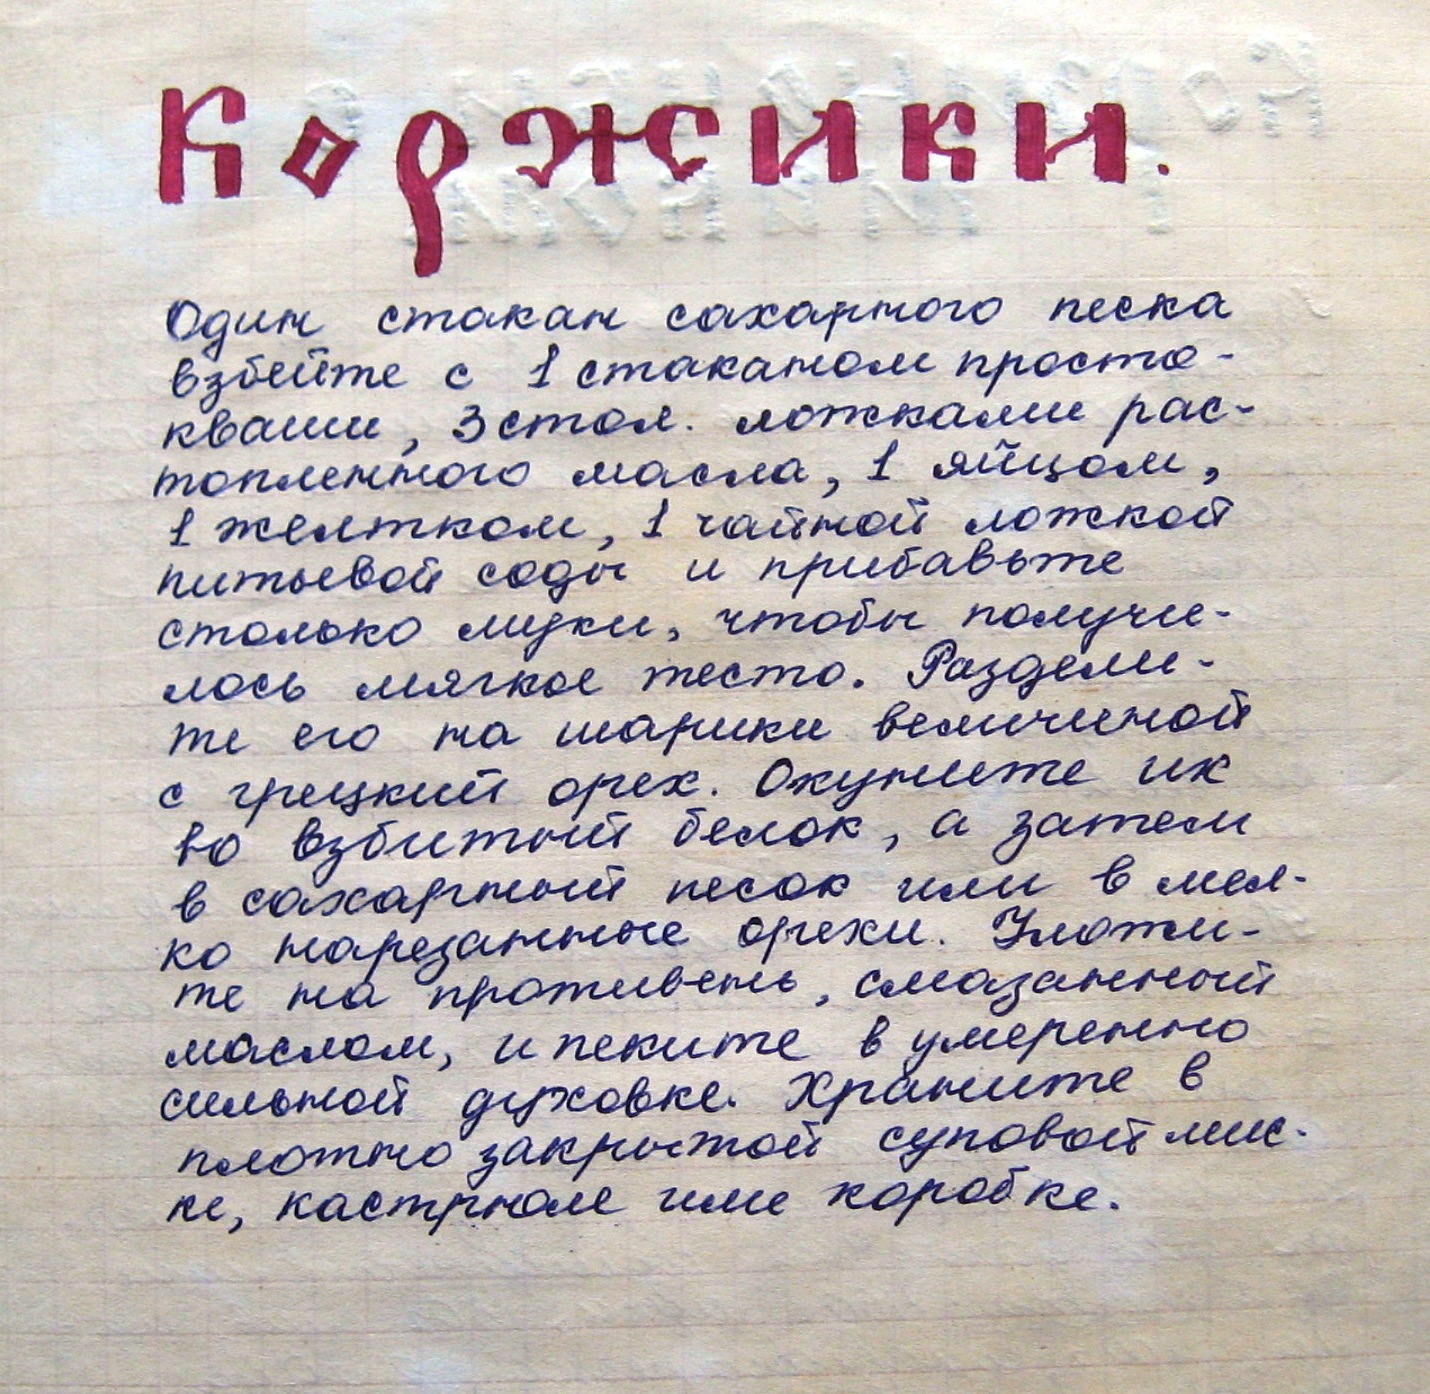 Коржики.
Один стакан сахарного песка
взбейте с 1 стаканом просто-
кваши, 3 стол. ложками рас-
топленного масла, 1 яйцом,
1 желтком, 1 чайной ложкой
питьевой соды и прибавьте
столько муки, чтобы получи-
лось мягкое тесто. Раздели-
те его на шарики величиной
с грецкий орех. Окуните их
во взбитый белок, а затем
в сахарный песок или в мел-
ко нарезанные орехи. Уложи-
те на противень, смазанный
маслом, и пеките в умеренно
сильной духовке. Храните в
плотно закрытой суповой мис-
ке, кастрюле или коробке.